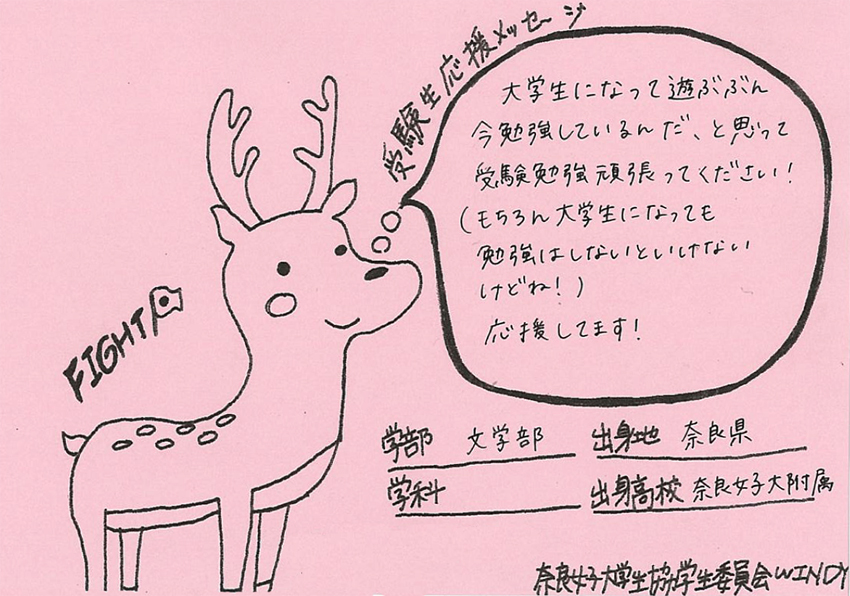 受験生応援メッセージ
大学生になって遊ぶぶん
今勉強しているんだ、と思って
受験勉強頑張ってください!
(もちろん大学生になっても
勉強はしないといけない
けどね!)
応援してます!
FIGHT
学部 文学部 出身地 奈良県
学科 出身高校 奈良女子大附属
奈良女子大学生協学生委員会WINDY